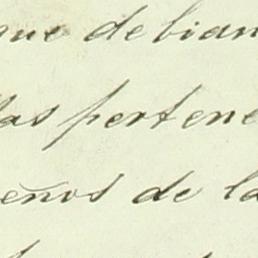 que debian
las pertene
eños de la